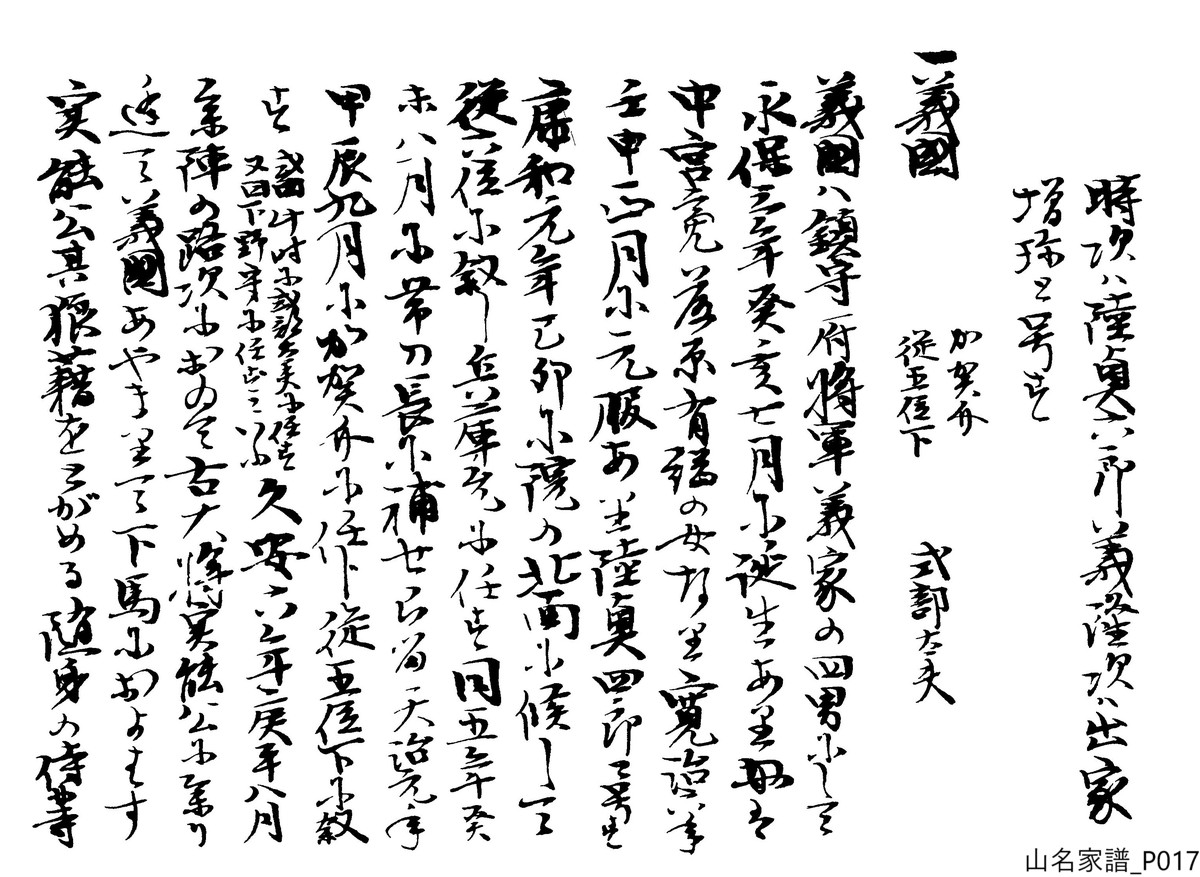 時次ハ陸奥六郎義隆次ハ出家
増珍と号す
一義國 加賀介 従五位下 式部大夫
義國ハ鎮守府将軍義家の四男にして
永保三年癸亥七月に誕生あり母は
中宮亮藤原有綱の女なり寛治六年
壬申正月に元服あり陸奥四郎と号す
康和元年己卯に院の北面に候して
従六位に叙し兵庫允に任す同五年癸
未八月に帯刀長に補せらる天治元年
甲辰九月に加賀介に任し従五位下に叙
す 或曰此時に式部大夫に任す
又曰下野守に任すといふ 久安六年庚午八月
参陣の路次におゐて右大将実能公に参り
逢て義國あやまりて下馬におよはす
実能公其狼藉をとがめる随身の侍等